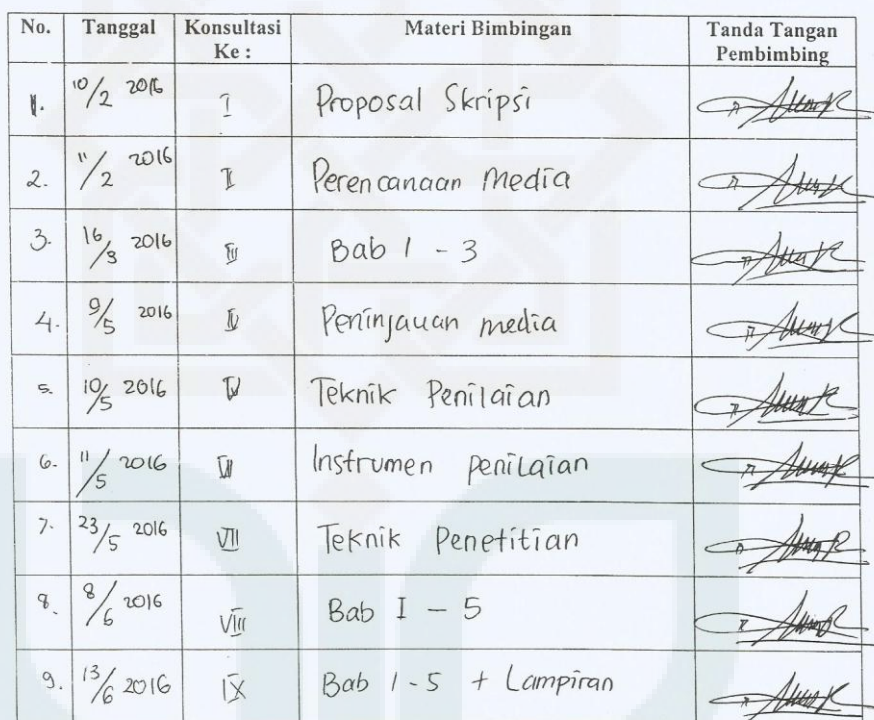 No. Tanggal Konsultasi Ke : Materi Bimbingan Tanda Tangan Pembimbing
1. 10/2 2016 I Proposal Skripsi
2. 11/2 2016 II Perencanaan Media
3. 16/3 2016 III Bab 1 - 3
4. 9/5 2016 IV Peninjauan media
5. 10/5 2016 V Teknik Penilaian
6. 11/5 2016 VI Instrumen penilaian
7. 23/5 2016 VII Teknik Penetitian
8. 8/6 2016 VIII Bab I - 5
9. 13/6 2016 IX Bab 1 - 5 + Lampiran